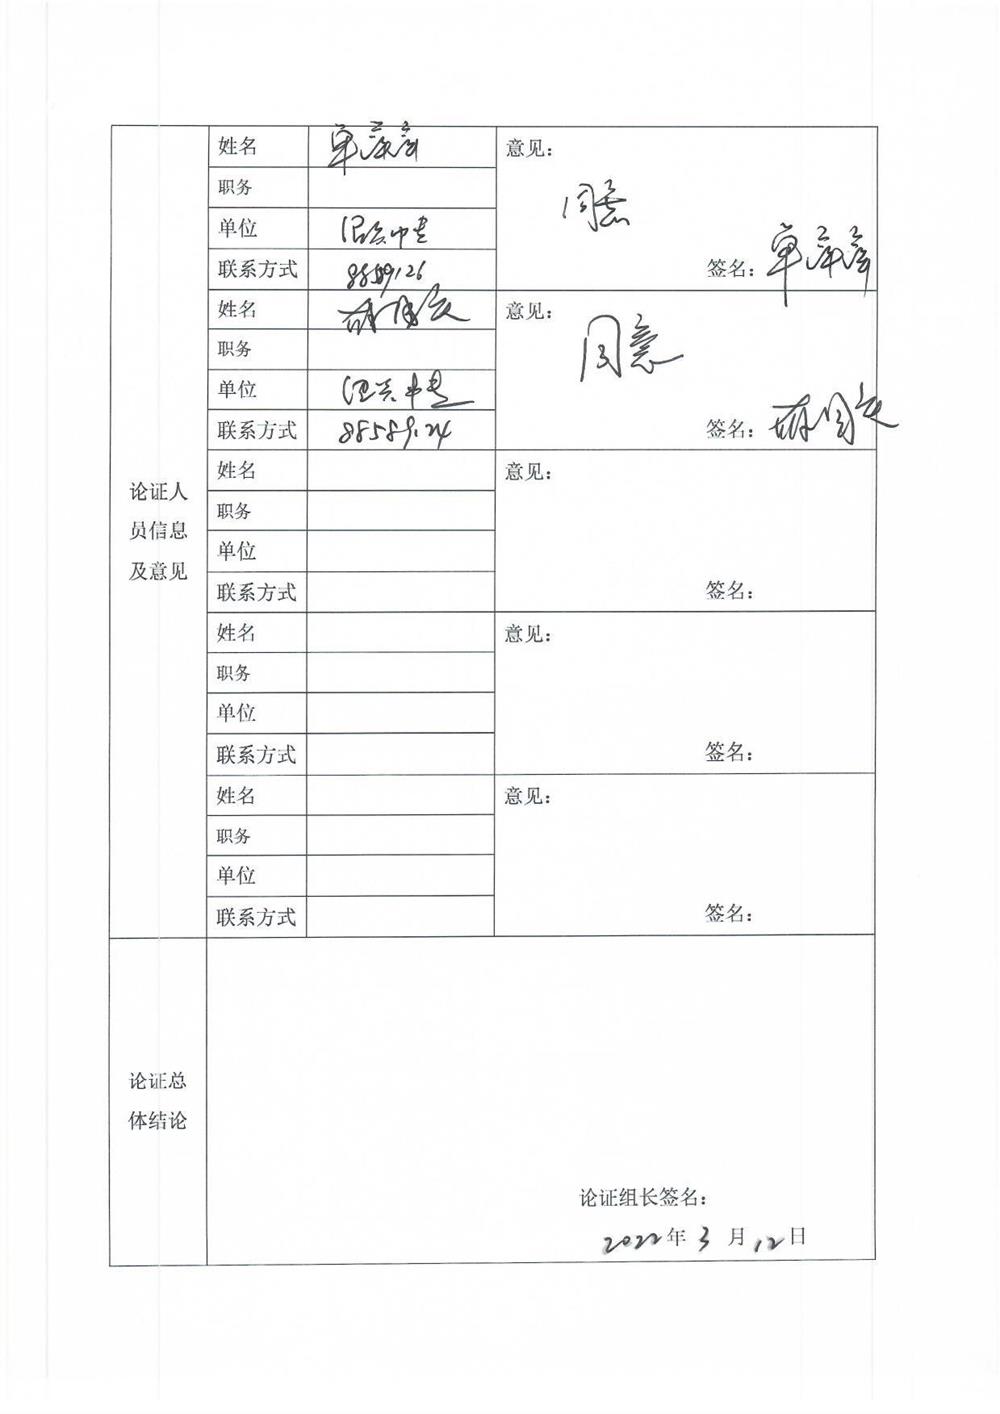 姓名
意见：
职务
同意
单位
签名：
联系方式 8859126
姓名
意见：
职务
同意
单位
联系方式 88589124 签名：
姓名
意见：
论证人
员信息
及意见
职务
单位
联系方式 签名：
姓名 意见：
职务
单位
联系方式 签名：
姓名 意见：
职务
单位
联系方式 签名：
论证总
体结论
论证组长签名：
2022年3月12日